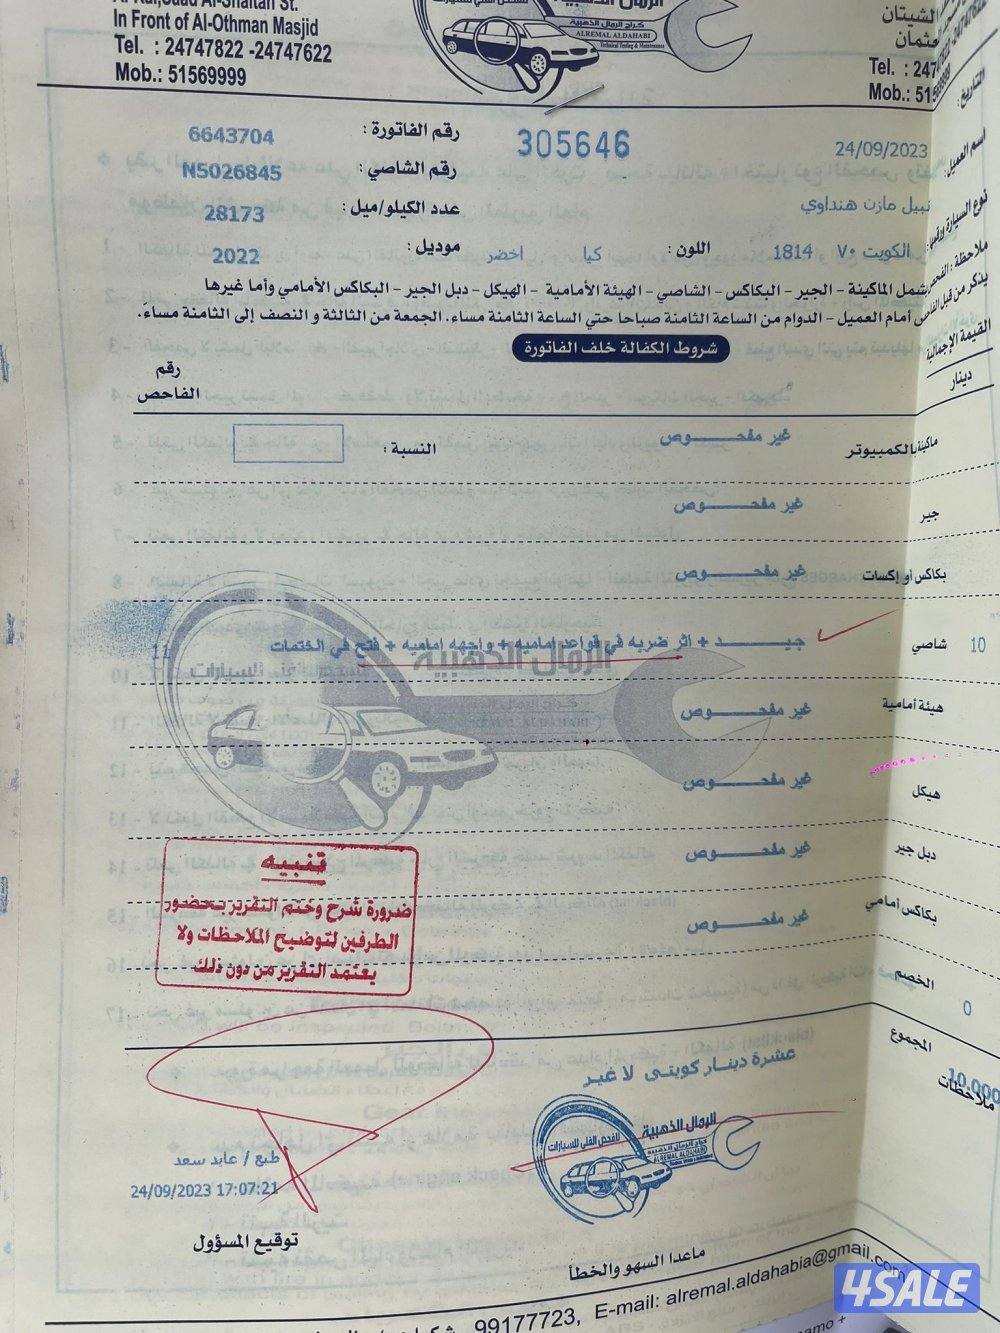 In Front of Al-Othman Masjid
Tel. : 24747822 -24747622
Mob.: 51569999
الرمال الذهبية
كراج الرمال الذهبية
ALREMAL ALDAHABI
Technical Testing & Maintenance
الشيتان
Tel. : 247
Mob.: 51
24747622
51569999
التاريخ :
24/09/2023
305646
رقم الفاتورة :
6643704
اسم العميل :
نبيل مازن هنداوي
رقم الشاصي :
N5026845
عدد الكيلو/ميل :
28173
نوع السيارة ورقمها :
الكويت ٧٠ 1814
اللون :
كيا
اخضر
موديل :
2022
ملاحظة : الفحص يشمل الماكينة - الجير - البكاكس - الشاصي - الهيئة الأمامية - الهيكل - دبل الجير - البكاكس الأمامي وأما غيرها
يذكر من قبل الفاحص أمام العميل - الدوام من الساعة الثامنة صباحا حتي الساعة الثامنة مساء، الجمعة من الثالثة و النصف إلى الثامنة مساءً.
شروط الكفالة خلف الفاتورة
القيمة الإجمالية
دينار
رقم
الفاحص
ماكينة بالكمبيوتر
غير مفحوص
النسبة :
جير
غير مفحوص
بكاكس أو إكسات
غير مفحوص
10
شاصي
جيد + اثر ضربه في قواعد اماميه + واجهه اماميه + فتح في الختمات
11
هيئة أمامية
غير مفحوص
هيكل
غير مفحوص
دبل جير
غير مفحوص
بكاكس أمامي
غير مفحوص
الخصم
0
تنبيه
ضرورة شرح وختم التقرير بحضور
الطرفين لتوضيح الملاحظات ولا
يعتمد التقرير من دون ذلك
المجموع
10.000
عشرة دينار كويتى لا غير
ملاحظات
الرمال الذهبية
للفحص الفني للسيارات
كراج الرمال الذهبية
ALREMAL ALDAHABI
طبع / عابد سعد
24/09/2023 17:07:21
توقيع المسؤول
ماعدا السهو والخطأ
99177723, E-mail: alremal.aldahabia@gmail.com
4SALE